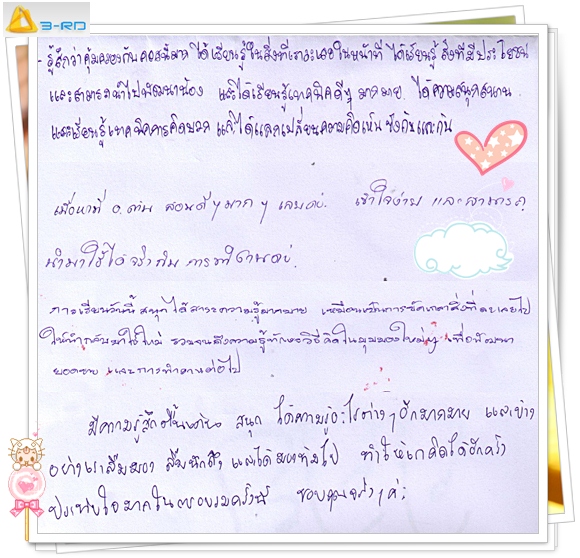 3-RD
- รู้สึกว่าคุ้มครองกับคอสนี้มาก ได้เรียนรู้ในสิ่งที่เราจะเจอในหน้าที่ ได้เรียนรู้ สิ่งที่มีประโยชน์
และสามารถนำไปพัฒนาน้อง และได้เรียนรู้เทคนิคดีๆ มากมาย. ได้ความสนุกสนาน
และเรียนรู้เทคนิคการคิดบวก และได้แลกเปลี่ยนความคิดเห็นซึ่งกันและกัน
เนื้อหาที่ อ. สอนดีๆมากๆ เลยค่ะ. เข้าใจง่าย และสามารถ
นำมาใช้ได้จริงกับ การทำงานค่ะ.
การเรียนวันนี้ สนุก ได้สาระความรู้มากมาย เหมือนเป็นการขัดเกลาสิ่งที่เคยไป
ให้นำกลับมาใช้ใหม่ รวมจนถึงความรู้ทักษะวิธีคิดในมุมมองใหม่ๆ เพื่อพัฒนา
ยอดขาย และการทำงานต่อไป
มีความรู้สึกตื่นเต้น สนุก ได้ความรู้อะไรต่างๆ อีกมากมาย และบาง
อย่างเราลืมมอง ลืมนึกถึง และได้มองข้ามไป ทำให้เราคิดได้อีกครั้ง
ประทับใจมากในการอบรมครั้งนี้ ขอบคุณจริงๆค่ะ